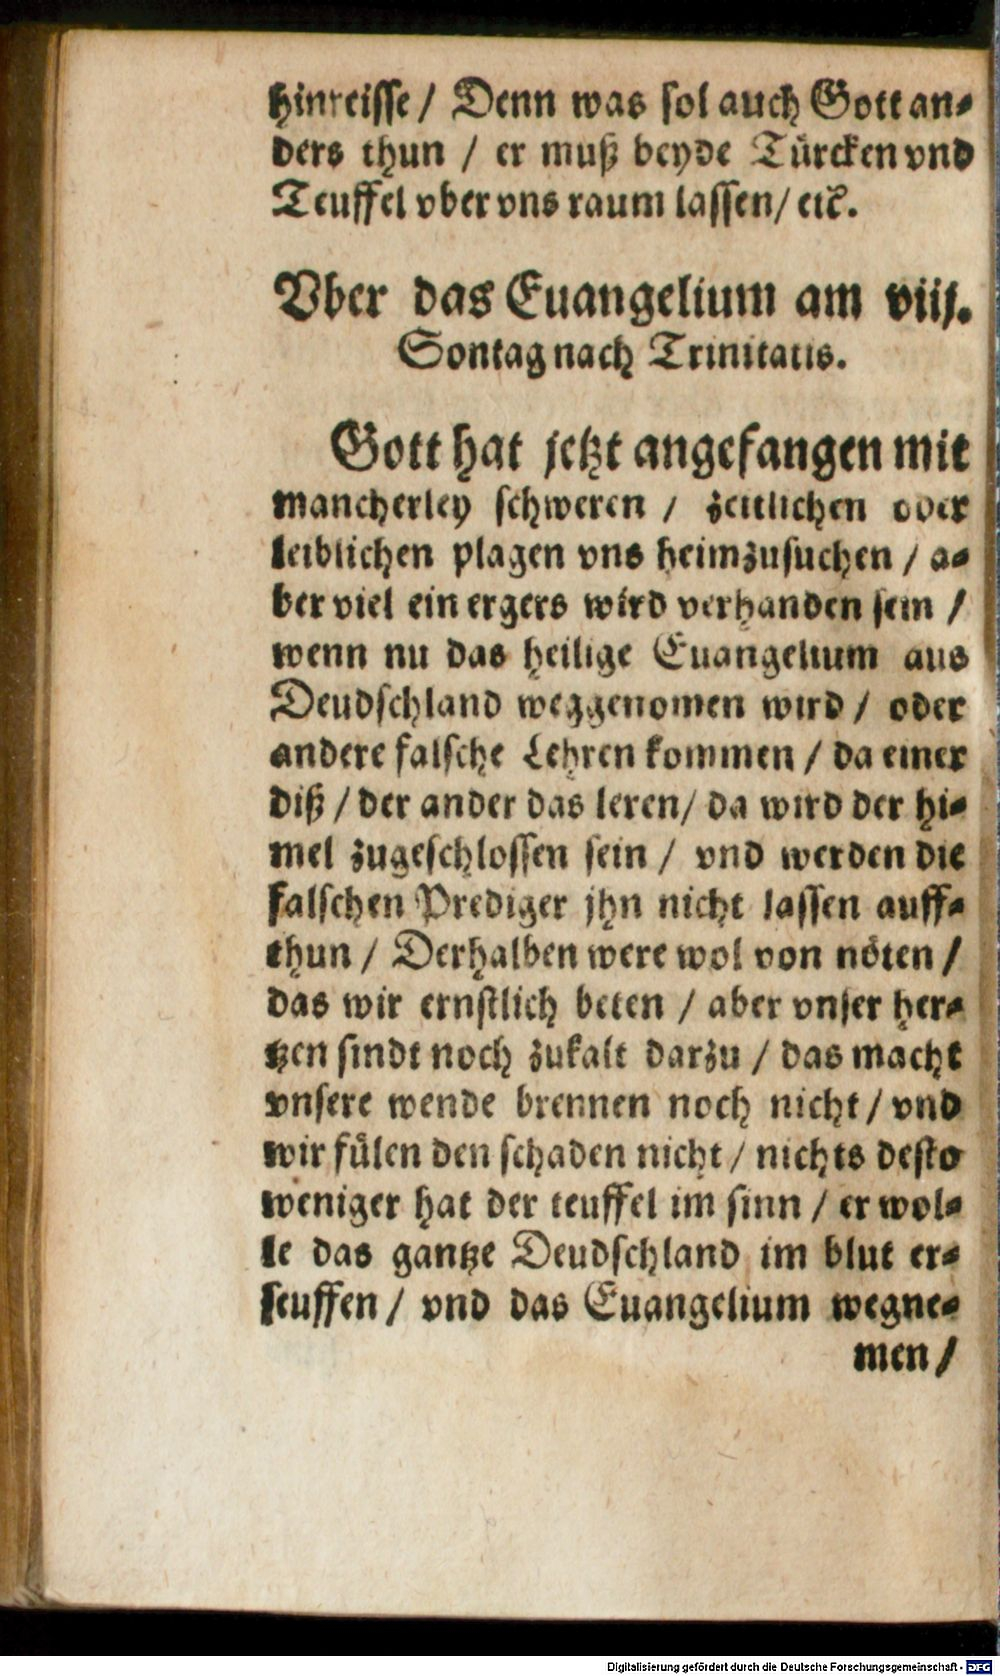 hinreisse / Denn was sol auch Gott an-
ders thun / er muß beyde Türcken vnd
Teuffel vber vns raum lassen / etc.
Vber das Euangelium am viij.
Sontag nach Trinitatis.
Gott hat jetzt angefangen mit
mancherley schweren / zeitlichen oder
leiblichen plagen vns heimzusuchen / a-
ber viel ein ergers wird verhanden sein /
wenn nu das heilige Euangelium aus
Deudschland weggenomen wird / oder
andere falsche Lehren kommen / da einer
diß / der ander das leren / da wird der hi-
mel zugeschlossen sein / vnd werden die
falschen Prediger jhn nicht lassen auff-
thun / Derhalben were wol von nöten /
das wir ernstlich beten / aber vnser her-
tzen sindt noch zukalt darzu / das macht
vnsere wende brennen noch nicht / vnd
wir fülen den schaden nicht / nichts desto
weniger hat der teuffel im sinn / er wol-
le das gantze Deudschland im blut er-
seuffen / vnd das Euangelium wegne-
men /
Digitalisierung gefördert durch die Deutsche Forschungsgemeinschaft - DFG